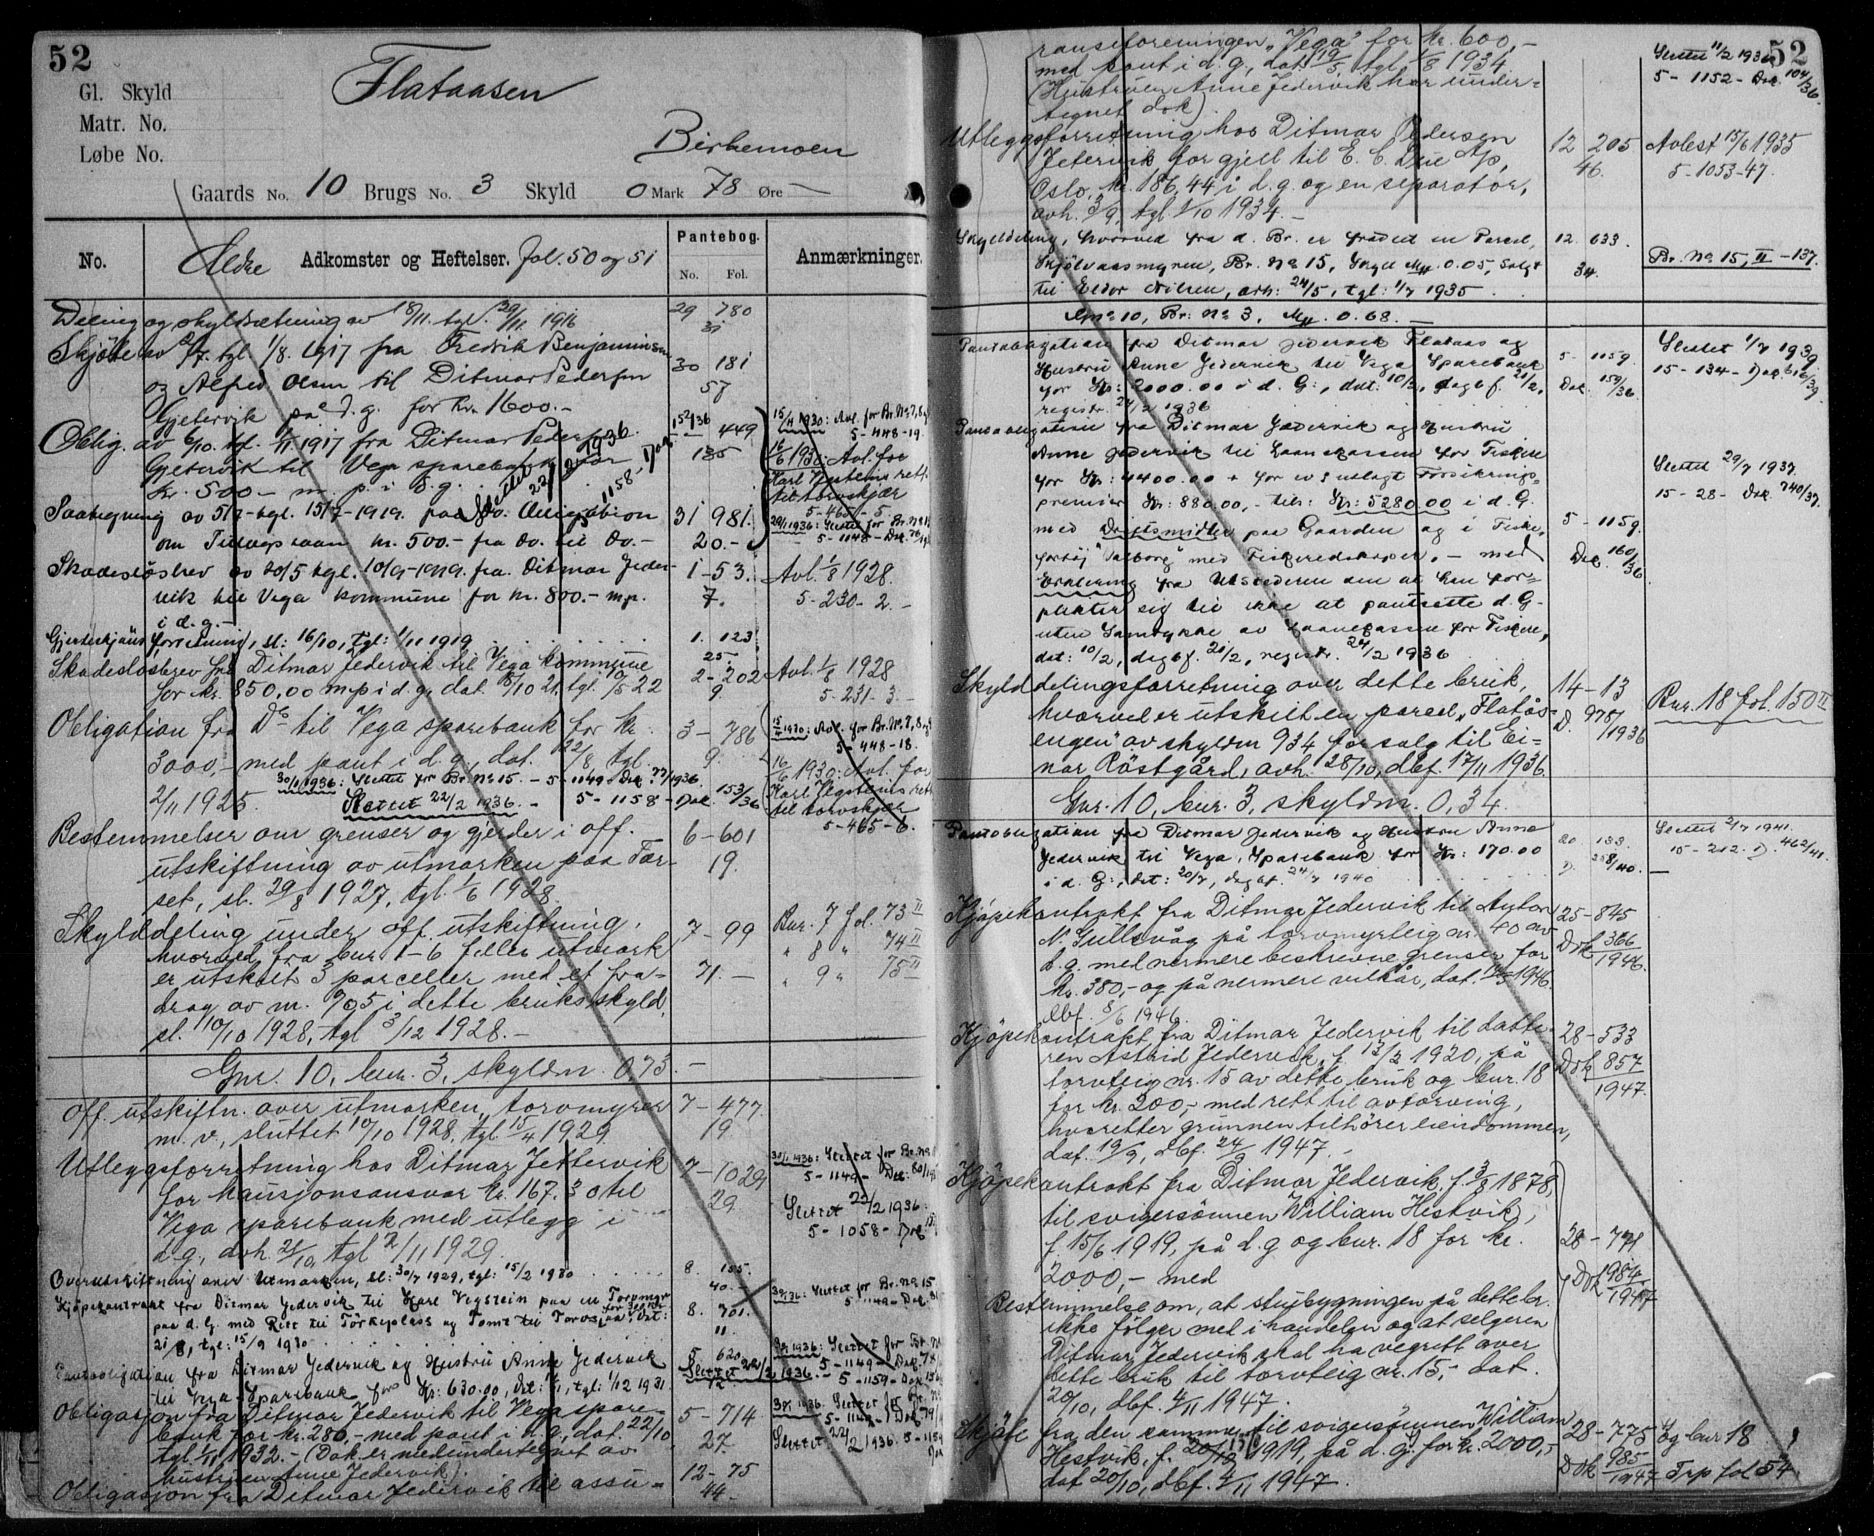 52
Gl. Skyld
Matr. No.
Løbe No.
Flataasen
Birkemoen
Gaards No. 10 Brugs No. 3 Skyld 0 Mark 78 Øre —
No. Ældre Adkomster og Heftelser. fol. 50 og 51 Pantebog. No. Fol. Anmærkninger.
Deling og skyldsætning av 18/11. tgl. 29/11. 1916 29 780
31
Skjøte av 2/7. tgl. 1/8. 1917 fra Fredrik Benjaminsen 30 181
og Alfred Olsen til Ditmar Pedersen 57
Gjetervik paa d.g. for kr. 1600.-
Oblig. av 6/10. tgl. 1/11 1917 fra Ditmar Pedersen 449
Gjetervik til Vega sparebank for 135
Kr. 500.- m. p. i d.g.
15/4 1930: Avl. for Br. No 7, 8 og 9
5-448-19.
16/6 1930: Avl. for
Karl Vegsteins rett
til torvskjær
5-465-5
Slettet 22/2 1936. 5 1158, Dok 152/36
Paategning av 5/7 tgl. 15/7-1919. paa do. Obligation 31 981.
om Tillægslaan kr. 500.- fra do. til do.- 20.-
Skadesløsbrev av 20/5 tgl. 10/9-1919. fra Ditmar Jeder- 1-53. Avl. 1/8 1928.
vik til Vega kommune for kr. 800.- m.p. 7. 5-230-2.-
i d.g.-
Gjerdeskjønsforretning, sl: 16/10, tgl: 1/11 1919 1. 123
25.
Skadesløsbrev fra Ditmar Jedervik til Vega kommune 2-202 Avl. 1/8 1928
for kr. 850,00 m p i d.g. dat. 8/10 21, tgl. 10/5 22 9 5-231-3.-
Obligation fra Do til Vega sparebank for kr. 3-786
3000,- med pant i d.g., dat. 22/8, tgl. 9.
2/11 1925.
15/4 1930: Avl. for Br. No 7, 8 og 9
5-448-18.
16/6 1930: Avl. for
Karl Vegsteins rett
til torvskjær
5-465-6.
30/1 1936: Slettet for Br. No 15. - 5-1149 - Dok 77/1936
Slettet 22/2 1936. - 5-1158 - Dok. 153/36
Bestemmelser om grenser og gjerder i off. 6-601
utskiftning av utmarken paa Tør- 19.
set, sl. 29/8 1927, tgl. 1/6 1928.
Skylddeling under off. utskiftning, 7-99 Bnr. 7 fol. 73 II
hvorved fra bnr. 1-6 felles utmark „ 8 „ 74 II
er utskilt 3 parceller med et fra- 71.- „ 9 „ 75 II
drag av m. 0,05 i dette bruks skyld,
sl. 10/10 1928, tgl 3/12 1928.-
Gnr. 10, bnr. 3, skyldm. 0,73.-
Off. utskiftn. over utmarken, torvmyrer 7-477.
m. v., sluttet 10/10 1928, tgl 15/4 1929. 19.
Utleggsforretning hos Ditmar Jettervik 7-1029
for kausjonsansvar kr. 167.30 til 29.
Vega sparebank med utlegg i
d.g., avh. 21/10, tgl 2/11 1929.
30/1 1936: Slettet for Br. No 15
5-1149-Dok: 80/1936
Slettet 22/2 1936.
5-1058-Dok
Overutskiftning over Utmarken, sl: 30/7 1929, tgl: 15/2 1930 8. 155.
40.-
Kjøpekontrakt fra Ditmar Jedervik til Karl Vegstein paa en Torvmyr
paa d. G. med Rett til Tørkeplass og Tomt til Torvsjaa, dat: 8. 701.
21/8, tgl: 15/9 1930 11.
Pantobligation fra Ditmar Jedervik og Hustru Anne Jedervik 5 620
til Vega Sparebank for Kr: 630.00, dat: 1/11, tgl: 1/12 1931. 12
Slettet 22/2 1936. - 5-1159-Dok
Obligasjon fra Ditmar Jedervik til Vega spare- 5-714
bank for kr. 280,- med pant i d.g., dat. 22/10 27.
tgl. 1/11 1932.- (Dok. er medundertegnet av
hustruen Anne Jedervik).
Slettet 22/2 1936. 5-1159
Obligasjon fra Ditmar Jedervik til assu- 12-75
44.-
52
ranseforeningen „Vega" for kr. 600,- Slettet 11/2 1936
med pant i d.g., dat. 19/5, tgl. 1/8 1934 5-1152-Dok. 104/36.
(Hustruen Anne Jedervik har under-
tegnet dok).
Utleggsforretning hos Ditmar Pedersen 12 205 Avlest 15/6 1935
Jetervik for gjeld til E. C. Due A/S, 46. 5-1053-47.
Oslo, kr. 186,44 i d.g. og en separator,
avh. 3/9, tgl 1/10 1934.-
Skylddeling, hvorved fra d. Br. er fradelt en Parsel, 12. 633.
Skjølvaasmyren, Br. No 15, Skyld Mk. 0.05, solgt 34. Br. No 15, II-137.
til Eldor Nilsen, avh: 24/5, tgl: 1/7 1935.
G. No 10, Br. No 3, Mk. 0.68.-
Pantobligation fra Ditmar Jedervik Flataas og Slettet 1/7 1939
Hustru Anne Jedervik til Vega Sparebank 5-1159. 15-134-Dok 616/39.
for Kr: 2000.00 i d. G:, dat: 10/2, dagbf. 21/2, Dok. 159/36.
registr. 24/2 1936
Pantobligation fra Ditmar Jedervik og Hustru
Anne Jedervik til Laanekassen for Fiskere Slettet 29/7 1937.
for Kr: 4400.00 + for evt utlagt Forsikrings- 15-28-Dok. 740/37.
premier Kr: 880.00,- tils: Kr: 5280.00 i d. G.
med Driftsmidler paa Gaarden og i Fiske- 5-1159.
fartøj „Valborg" med Fiskeredskaper, - med Dok. 160/36
Erklæring fra Utstederen om at han for-
plikter sig til ikke at pantsette d. G.
uten Samtykke av Laanekassen for Fiskere,
dat: 10/2, dagbf. 21/2, registr. 24/2 1936
Skylddelingsforretning over dette bruk, 14-13
hvorved er utskilt en parcel „Flatås- D. 978/1936 Bnr. 18 fol. 150 II
engen" av skyldm 0,34 for salg til Ei-
nar Röstgård, avh. 28/10, dbf. 17/11 1936
Gnr. 10, bnr. 3, skyldm. 0,34.
Pantobligation fra Ditmar Jedervik og Hustru Anne 20 133. Slettet 2/7 1941.
Jedervik til Vega Sparebank for Kr: 170.00 D. 258/40. 15-212. D. 462/41.
i d. G:, dat: 20/7, dagbf. 24/7 1940
Kjöpekontrakt fra Ditmar Jedervik til Anton 25-845
N. Gullsvåg på torvmyrteig nr. 40 av Dok 366/1946.
d.g. med nermere beskrevne grenser for
kr. 380,- og på nermere vilkår, dat. 1946,
dbf. 8/6 1946.
Kjöpekontrakt fra Ditmar Jedervik til datte- 28-533
ren Astrid Jedervik, f. 13/2 1920, på Dok 857/1947.
torvteig nr. 15 av dette bruk og bnr. 18
for kr. 200,- med rett til avtorving,
hvoretter grunnen tilhörer eiendommen,
dat. 19/9, dbf. 24/9 1947.-
Kjöpekontrakt fra Ditmar Jedervik, f. 3/8 1878,
til svigersönnen William Hestvik,
f. 15/6 1919, på d.g og bnr. 18 for kr. 28-771
2000,- med Dok 984/1947
Bestemmelse om, at stubygningen på dette br.
ikke fölger med i handelen og at selgeren
Ditmar Jedervik skal ha vegrett over
dette bruk til torvteig nr. 15,- dat.
20/10, dbf. 4/11 1947.
Skjöte fra den samme til svigersönnen William 28-775 Og bnr 18
Hestvik, f. 1919, på d.g. for kr. 2000,- Dok 985/1947 Trp fol 54
dat 20/10, dbf. 4/11 1947.